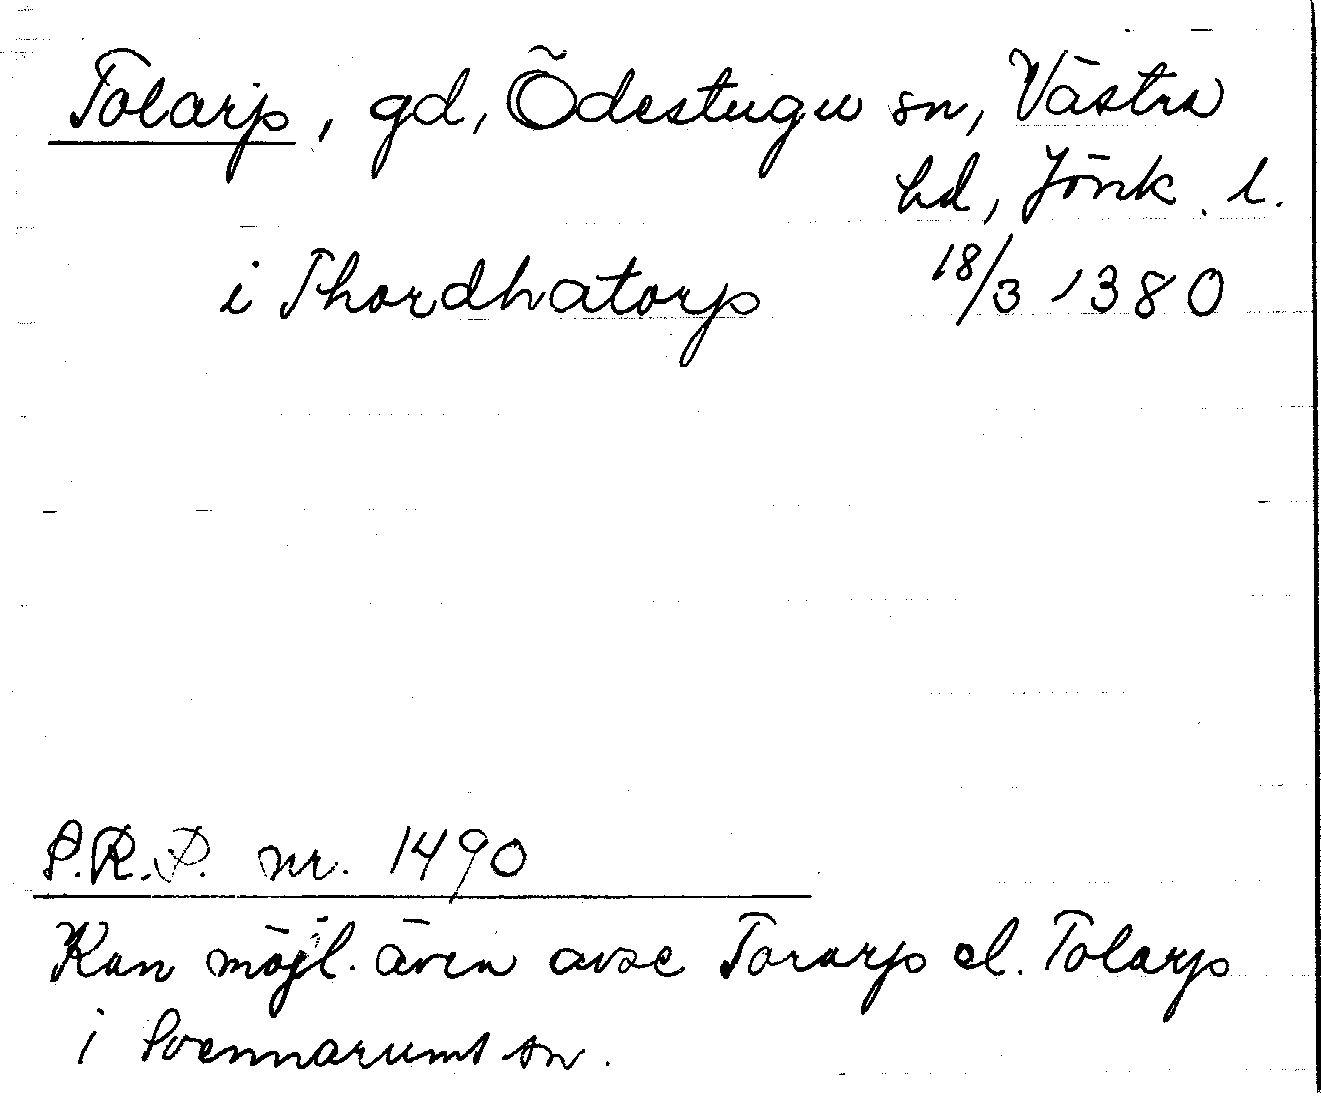 Tolarp, gd, Ödestugu sn, Västra
hd, Jönk. l.
i Thordhatorp 18/3 1380
S.R.P. nr. 1490
Kan möjl. även avse Torarp el. Tolarp
i Svennarums sn.